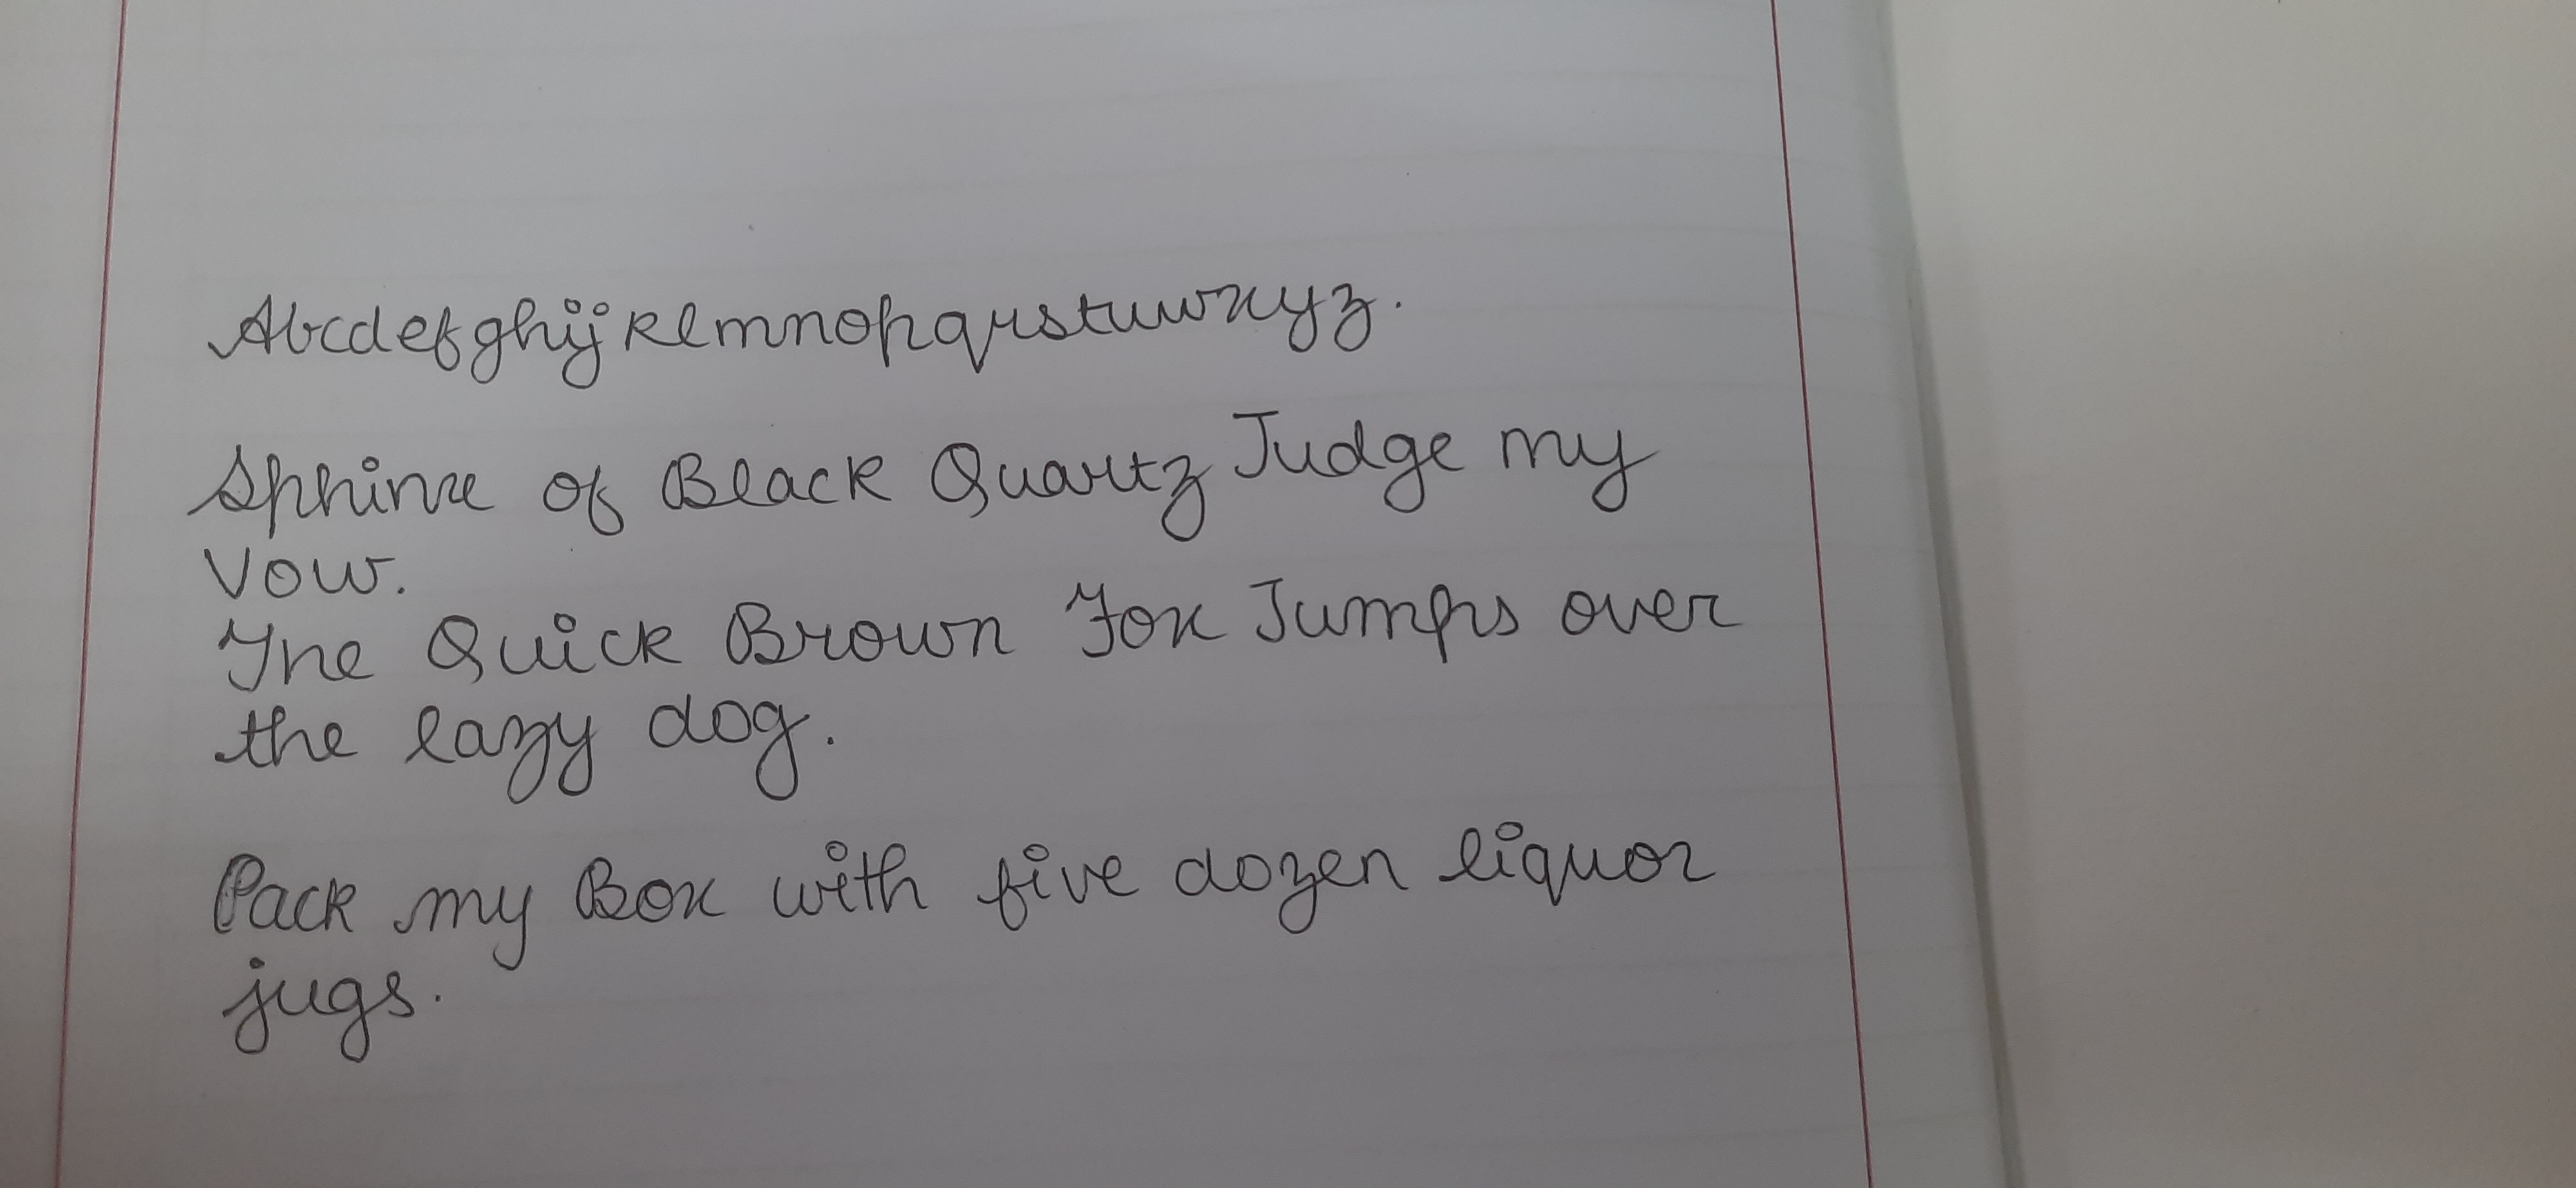 Abcdefghijklmnopqrstuwxyz.
Sphinx of Black Quartz Judge my
Vow.
The Quick Brown Fox Jumps over
the lazy dog.
Pack my Box with five dozen liquor
jugs.